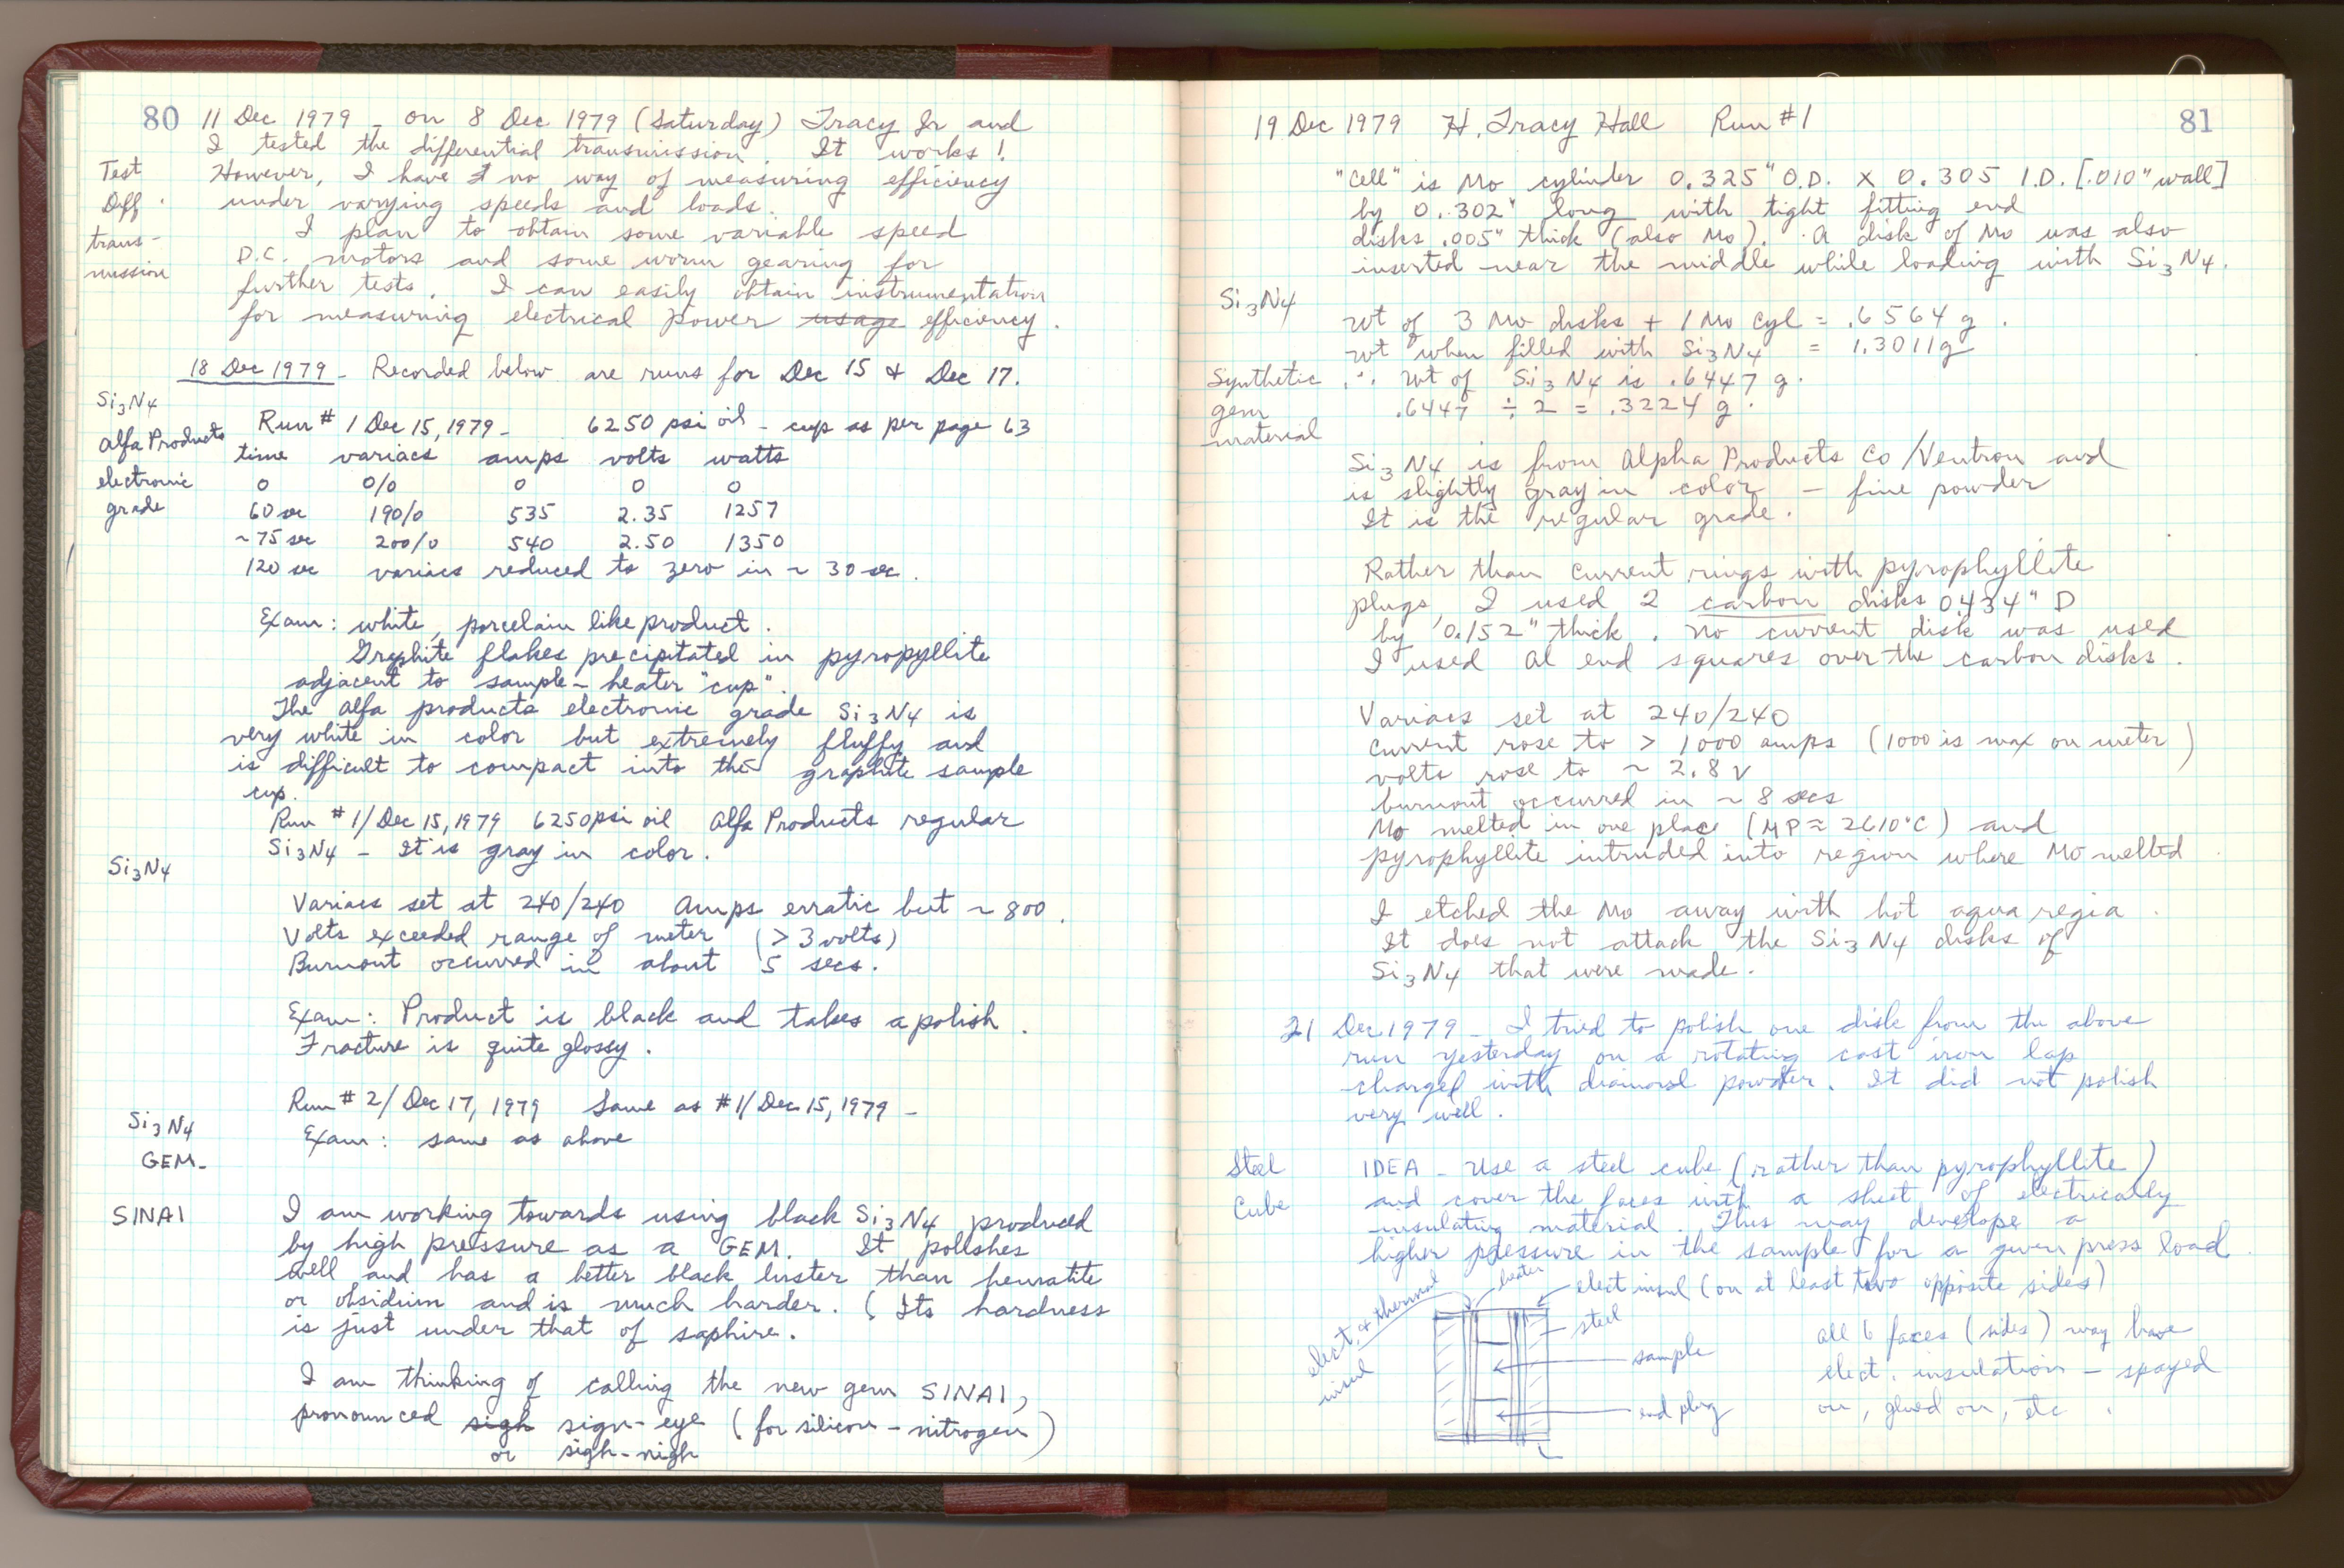 80 11 Dec 1979 - on 8 Dec 1979 (Saturday) Tracy Jr and
I tested the differential transmission. It works!
Test However, I have no way of measuring efficiency
Diff. under varying speeds and loads.
trans- I plan to obtain some variable speed
mission D.C. motors and some worm gearing for
further tests. I can easily obtain instrumentation
for measuring electrical power usage efficiency.
18 Dec 1979 - Recorded below are runs for Dec 15 & Dec 17.
Si3N4
Alfa Products Run # 1 Dec 15, 1979 - 6250 psi oil - cup as per page 63
time variacs amps volts watts
electronic 0 0/0 0 0 0
grade 60 sec 190/0 535 2.35 1257
~75 sec 200/0 540 2.50 1350
120 sec variacs reduced to zero in ~ 30 sec.
Exam: white, porcelain like product.
Graphite flakes precipitated in pyropyllite
adjacent to sample - heater "cup".
The Alfa products electronic grade Si3N4 is
very white in color but extremely fluffy and
is difficult to compact into the graphite sample
cup.
Run #1/Dec 15, 1979 6250 psi oil Alfa Products regular
Si3N4 - It is gray in color.
Si3N4
Variacs set at 240/240 Amps erratic but ~ 800.
Volts exceeded range of meter (> 3 volts)
Burnout occurred in about 5 secs.
Exam: Product is black and takes a polish.
Fracture is quite glossy.
Run # 2/Dec 17, 1979 Same as #1/Dec 15, 1979 -
Si3N4 Exam: same as above
GEM-
SINAI I am working towards using black Si3N4 produced
by high pressure as a GEM. It polishes
well and has a better black luster than hematite
or obsidium and is much harder. (Its hardness
is just under that of saphire.
I am thinking of calling the new gem SINAI,
pronounced sigh sign-eye (for silicon-nitrogen)
or sigh-nigh
19 Dec 1979 H. Tracy Hall Run #1 81
"Cell" is Mo cylinder 0.325" O.D. x 0.305 I.D. [.010" wall]
by 0.302" long with tight fitting end
disks .005" thick (also Mo). A disk of Mo was also
inserted near the middle while loading with Si3N4.
Si3N4
wt of 3 Mo disks + 1 Mo cyl = .6564 g.
wt when filled with Si3N4 = 1.3011g
Synthetic ∴ wt of Si3N4 is .6447 g.
gem .6447 ÷ 2 = .3224 g.
material
Si3N4 is from Alpha Products Co/Ventron and
is slightly gray in color - fine powder
It is the regular grade.
Rather than current rings with pyrophyllite
plugs, I used 2 carbon disks 0.434" D
by 0.152" thick. No current disk was used
I used Al end squares over the carbon disks.
Variacs set at 240/240
Current rose to > 1000 amps (1000 is max on meter)
volts rose to ~ 2.8 V
burnout occurred in ~ 8 secs
Mo melted in one place (MP ≈ 2610°C) and
pyrophyllite intruded into region where Mo melted.
I etched the Mo away with hot aqua regia.
It does not attack the Si3N4 disks of
Si3N4 that were made.
21 Dec 1979 - I tried to polish one disk from the above
run yesterday on a rotating cast iron lap
charged with diamond powder. It did not polish
very well.
Steel IDEA - Use a steel cube (rather than pyrophyllite)
Cube and cover the faces with a sheet of electrically
insulating material. This may develope a
higher pressure in the sample for a given press load.
elect. & thermal insul
heater
elect insul (on at least two opposite sides)
steel
sample
end plug
All 6 faces (sides) may have
elect. insulation - spayed
on, glued on, etc.